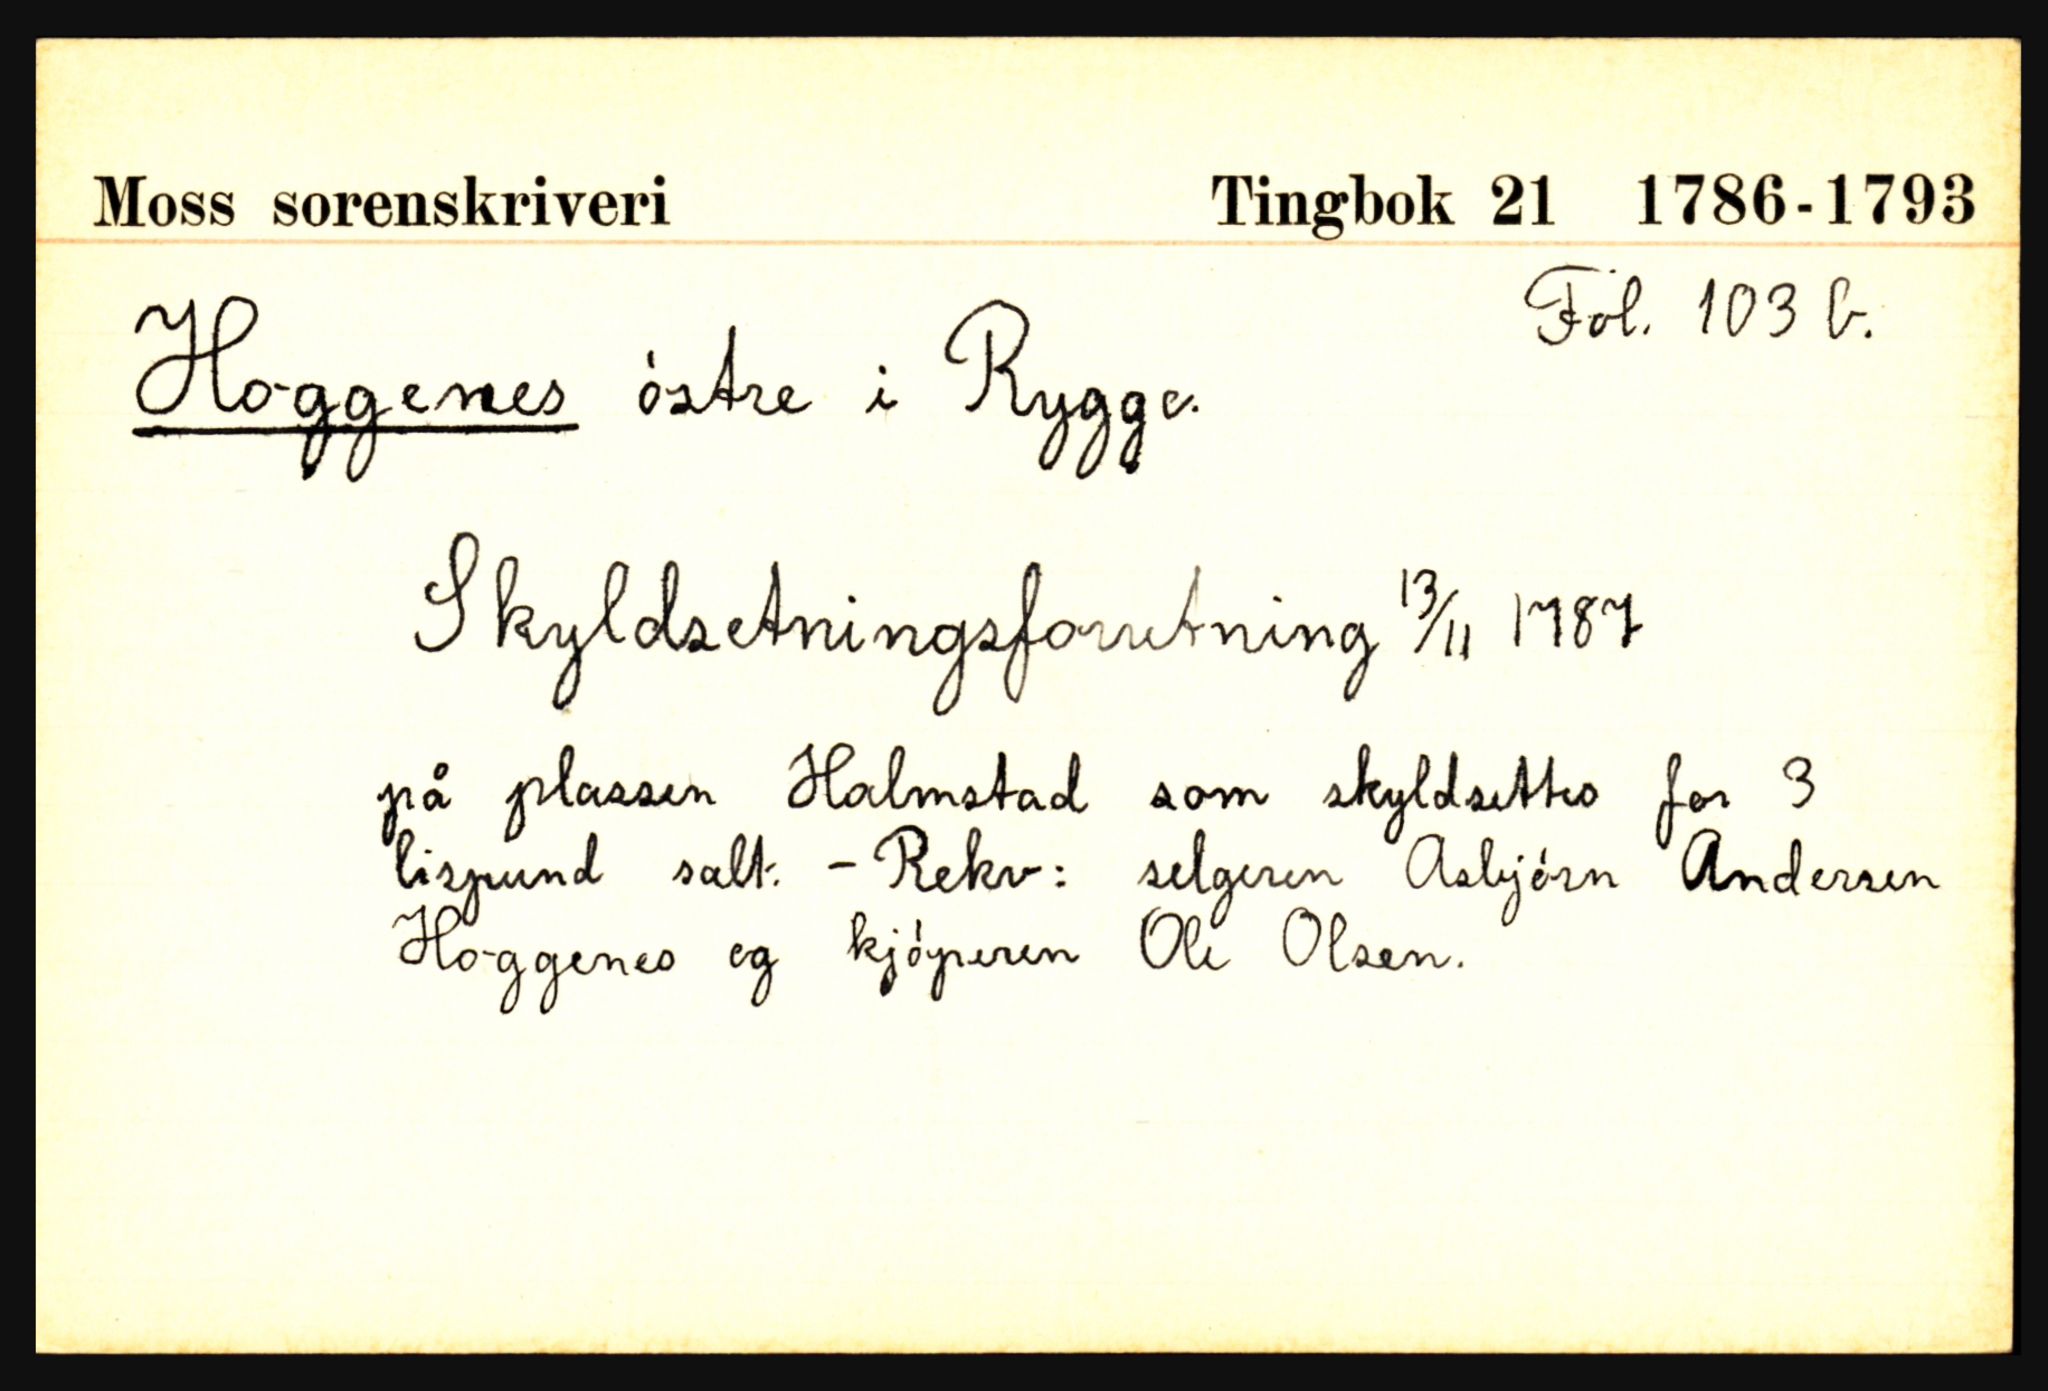 Moss sorenskriveri Tingbok 21 1786-1793
Fol. 103 b.
Hoggenes østre i Rygge.
Skyldsetningsforretning 13/11 1787
på plassen Halmstad som skyldsettes for 3
lispund salt. - Rekv: selgeren Asbjørn Andersen
Hoggenes og kjøperen Ole Olsen.